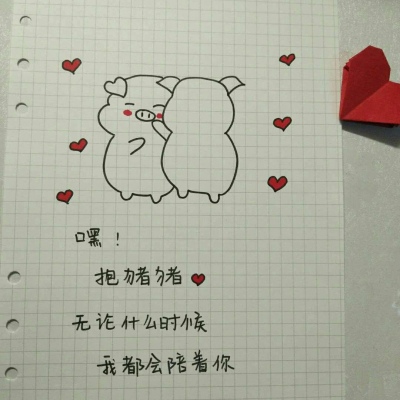 嘿！
抱猪猪
无论什么时候
我都会陪着你